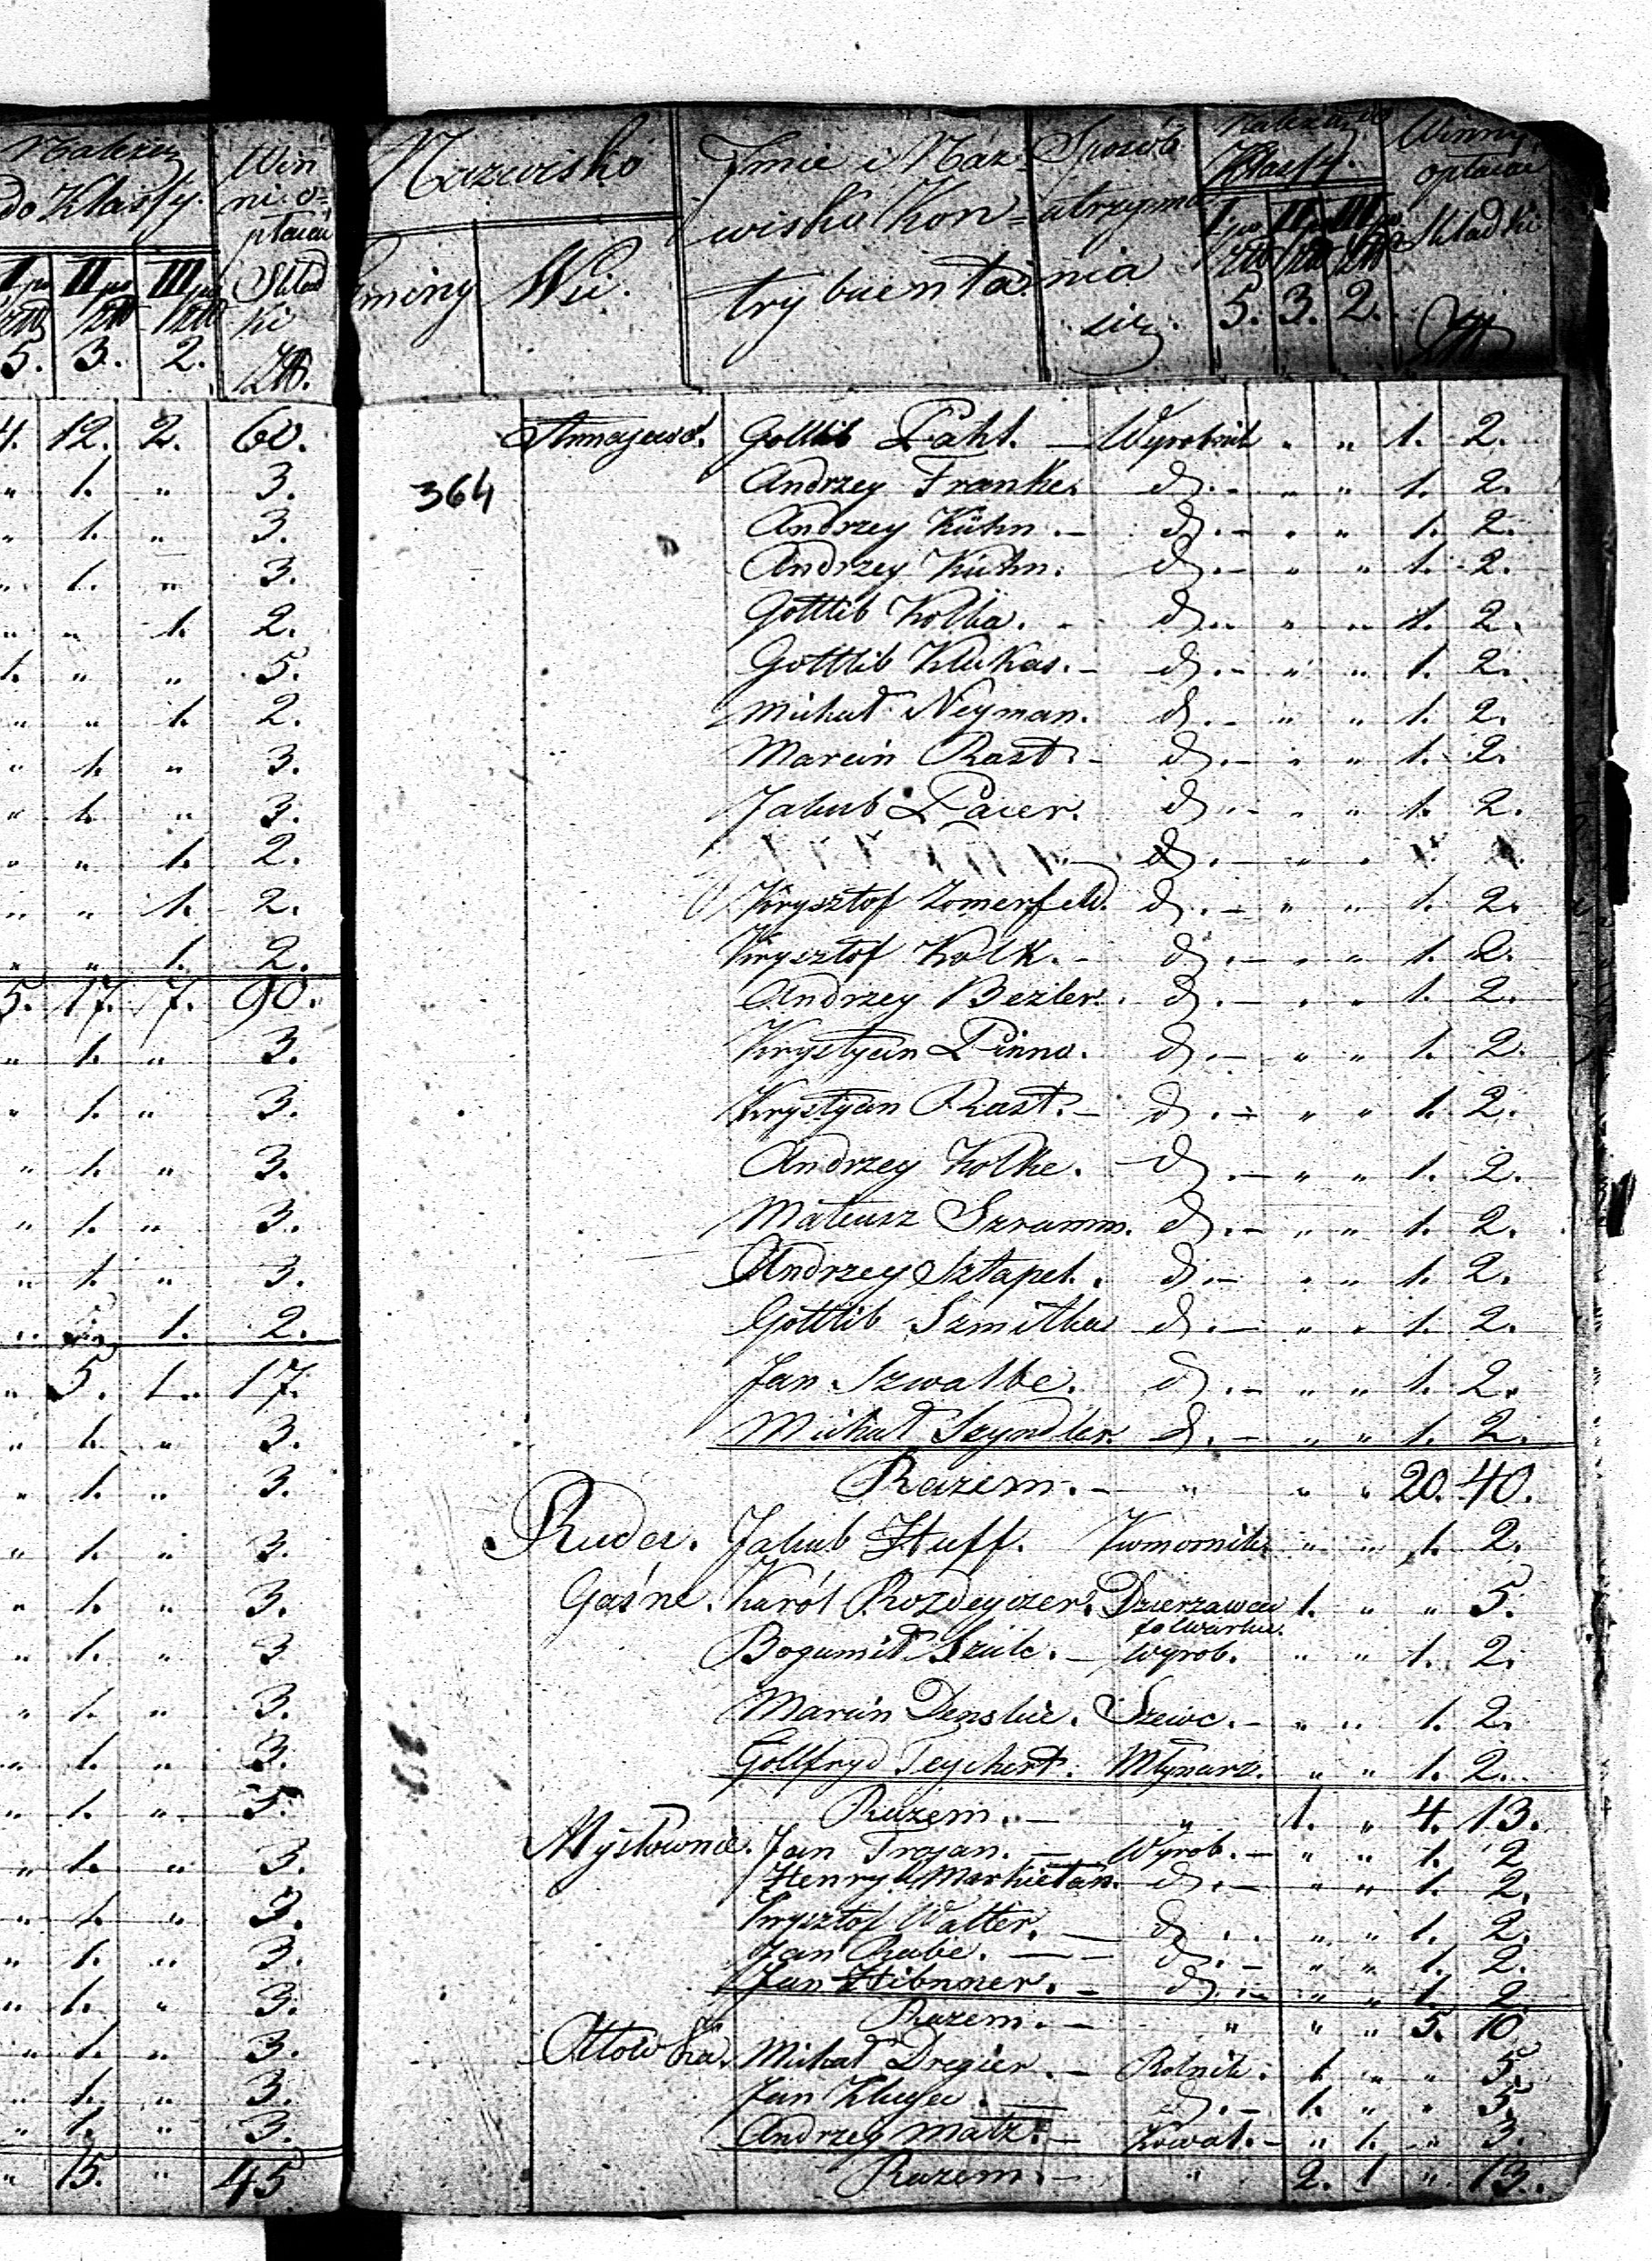 Należy Win
do Klassy. ni o=
płacać
I II III Skład
ki
5. 3. 2. Złł.
4. 12. 2. 60.
" 1. " 3.
" 1. " 3.
" 1. " 3.
" " 1. 2.
1. " " 5.
" " 1. 2.
" 1. " 3.
" 1. " 3.
" " 1. 2.
" " 1. 2.
" " 1. 2.
5. 17. 7. 90.
" 1. " 3.
" 1. " 3.
" 1. " 3.
" 1. " 3.
" 1. " 3.
" 1. 2.
" 5. 1. 17.
" 1. " 3.
" 1. " 3.
" 1. " 3.
" 1. " 3.
" 1. " 3
" 1. " 3.
" 1. " 3.
" 1. " 3.
" 1. " 3.
" 1. " 3.
" 1. " 3.
" 1. " 3.
" 1. " 3.
" 1. " 3.
" 1. " 3.
" 15. " 45
Nazwisko Imie i Naz= Sposób Należą do Winny
wisko Kon= utrzyma Klassy. opłacać
Gminy Wsi. trybuenta. nia I II III Składki
się. 5. 3. 2. Złł
Annajewo. Gottlib Pahl. — Wyrobnik " " 1. 2.
364 Andrzey Franke. d. — " " 1. 2.
Andrzey Kühn. — d. — " " 1. 2.
Andrzey Kuhn. d. — " " 1. 2.
Gottlib Kolba. d. " " 1. 2.
Gottlib Klukas. — d. — " " 1. 2.
Michał Neyman. d. — " " 1. 2.
Marcin Rast. — d. — " " 1. 2.
Jakub Paier. d. — " " 1. 2.
d. — " "
Krysztof Zomerfeld. d. — " " 1. 2.
Krysztof Kolk. — d. — " " 1. 2.
Andrzey Bezler. d. — " " 1. 2.
Krystyan Pinno. d. — " " 1. 2.
Krystyan Rast. — d. — " " 1. 2.
Andrzey Kolke. d. — " " 1. 2.
Mateusz Szramm. d. — " " 1. 2.
Andrzey Sztapel. d. — " " 1. 2.
Gottlib Szmitka d. — " " 1. 2.
Jan Szwalbe. d. — " " 1. 2.
Michał Szyndler. d. — " " 1. 2.
Razem. — " " " 20. 40.
Ruda. Jakub Huff. Komornik. " " 1. 2.
Gaśne. Karól Rozdeyczer. Dzierzawca 1. " " 5.
folwarku.
Bogumił Szulc. — wyrob. " " 1. 2.
Marcin Denskie. Szewc. — " " 1. 2.
Gottfryd Teychert. Młynarz. " " 1. 2.
Razem. — " 1. " 4. 13.
Mysłownie. Jan Trojan. — Wyrob. — " " 1. 2
Henryk Markietan. d. — " " 1. 2.
Krysztof Walter. — d. " " 1. 2.
Jan Rabe. — d. — " " 1. 2.
Jan Hibnner. — d. — " " 1. 2.
Razem. — " " " 5. 10
Michał Dregier. — Rolnik. 1. " " 5.
Jan d. — 1. " " 5.
Andrzey Matz. — Kowal. — " 1. " 3.
Razem. — " 2. 1 " 13.